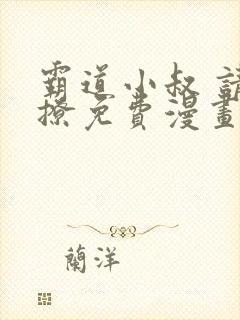 霸道小叔 請
撩免費漫畫
蘭洋